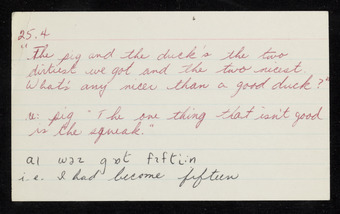 25.4
"The pig and the duck's the two
dirtiest we got and the two nicest.
What's any nicer than a good duck?"
u: pig "The one thing that isn't good
is the squeak."
aɪ wəz gɒt fɪfti:n
i.e. I had become fifteen